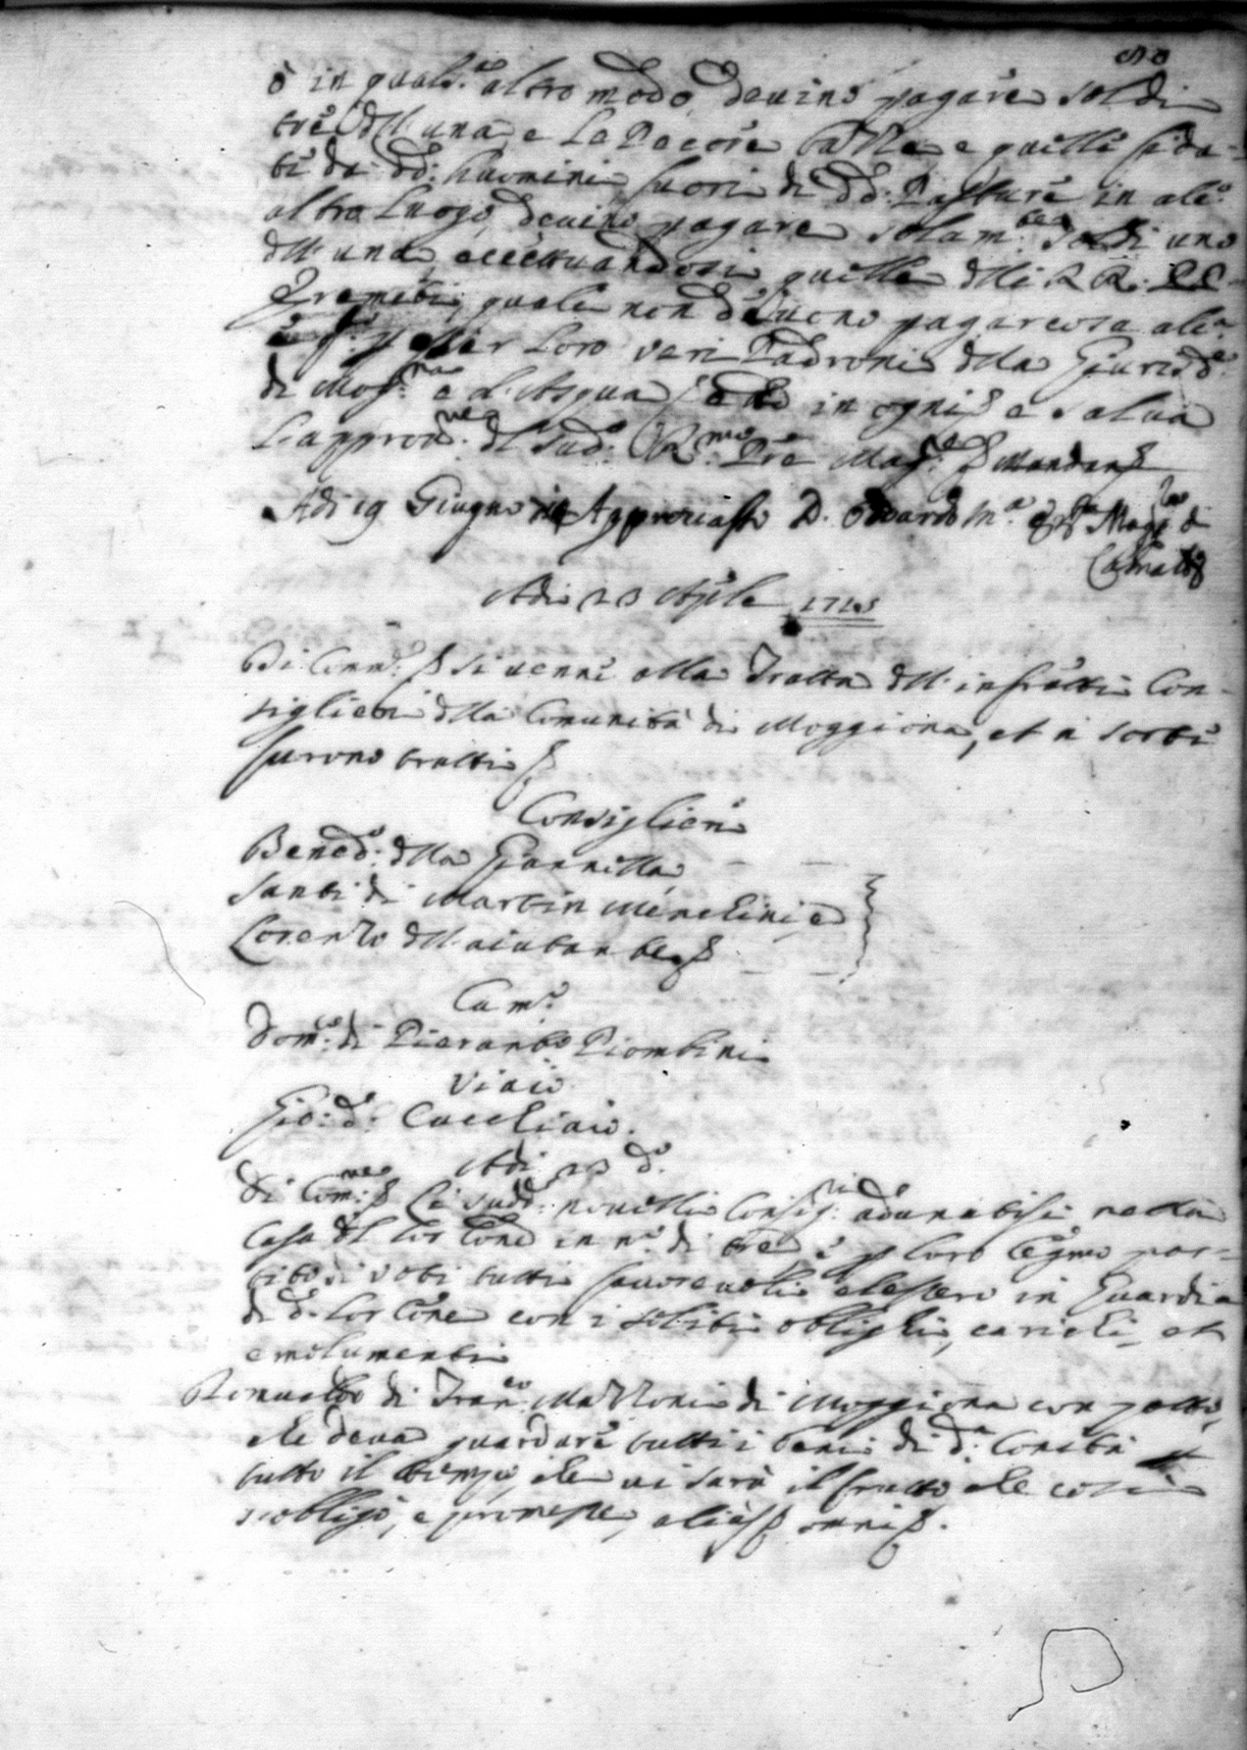 80
ò in quals.o altro modo devino pagare soldi
trè dll'una e le Pecore e quelle fida-
te da dd: huomini fuori di dd: Pasture in alc.o
altro luogo, devino pagare solam.te soldi uno
dll'una eccettuandosi quelle dlli RR: PP.
Eremiti, quali non devono pagar cosa alc.a
p esser loro veri Padroni dlla Giurisd.e
di Mog.na e l'Acqua in ogni e salva
l'approv.ne dl sud.o R.mo Pre Mag.re
Adi 19 Giugno Approvasi D. Odoardo M.a Mag.re di
Camald.
Adi 23 Aprile 1725
Di Comm.e si venne alla Tratta dll'infratti Con-
siglieri dlla Comunità di Moggiona, et a sorte
furono tratti
Consiglieri
Bened.o dlla Giannella
Santi di Martin Menchini, e
Lorenzo dll'aiutante
Cam.o
Dom.co di Pierant.o Piombini
Viaio
Gio: d.o Cucchiaio.
Adi 23 d.o
Di Com.ne li sudd.i novelli Consig.ri adunatisi nella
Casa dl lor Cone in n.o di tre e p loro legmo par-
tito di voti tutti favorevoli elessero in Guardia
di d.o lor Cone con i soliti oblighi, carichi, et
emolumenti
Romualdo di Fran.co Mazzoni di Moggiona con patto,
che deva guardare tutti i beni di d.a Comtà p
tutto il tempo, che vi sarà il frutto che così
s'obligò, e promesse, omni.